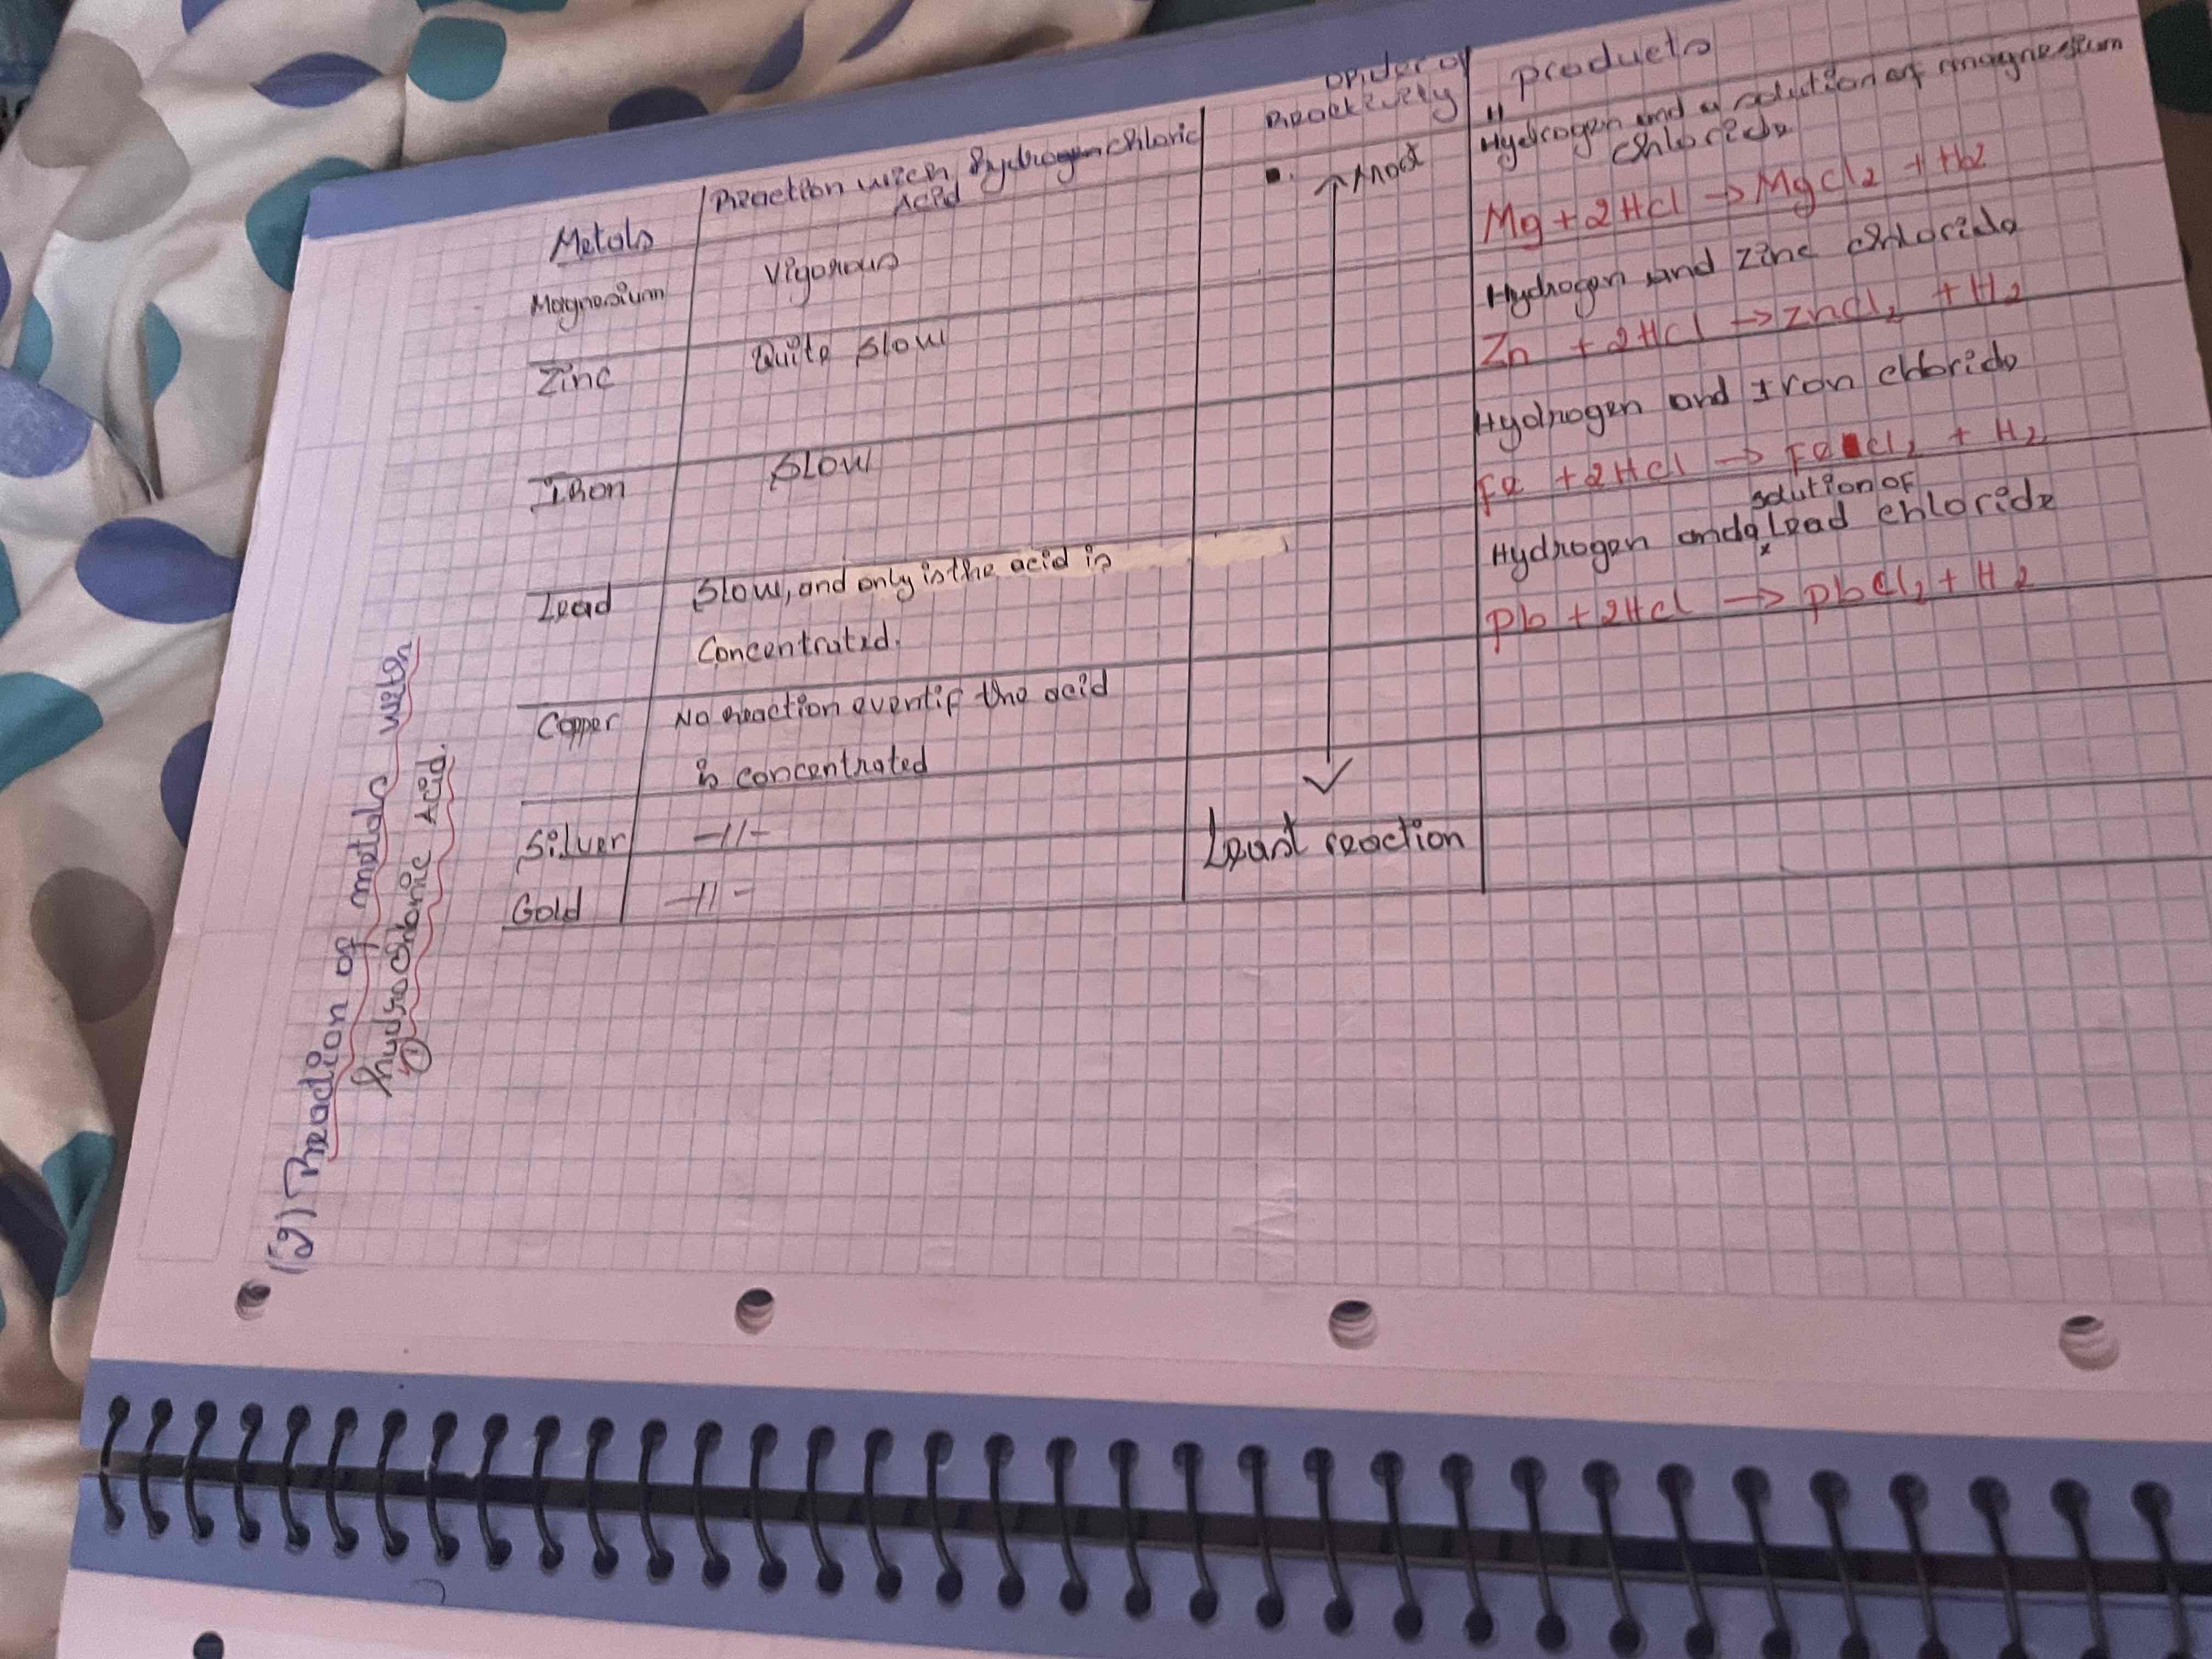 (2) Reaction of metals with
hydrochloric Acid.
Metals
Reaction with hydrogen chloric
Acid
order of
Reactivity
products
Magnesium
Vigorous
most
"
Hydrogen and a solution of magnesium
chloride
Mg + 2HCl → MgCl2 + H2
Zinc
Quite slow
Hydrogen and zinc chloride
Zn + 2HCl → ZnCl2 + H2
Iron
Slow
Hydrogen and Iron chloride
Fe + 2HCl → FeCl2 + H2
Lead
Slow, and only is the acid is
Concentrated.
solution of
Hydrogen and a Lead chloride
Pb + 2HCl → PbCl2 + H2
Copper
No reaction even if the acid
is concentrated
Silver
-//-
Least reaction
Gold
-//-